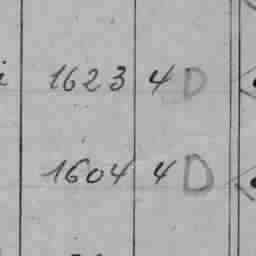 1623 4 D
1604 4 D